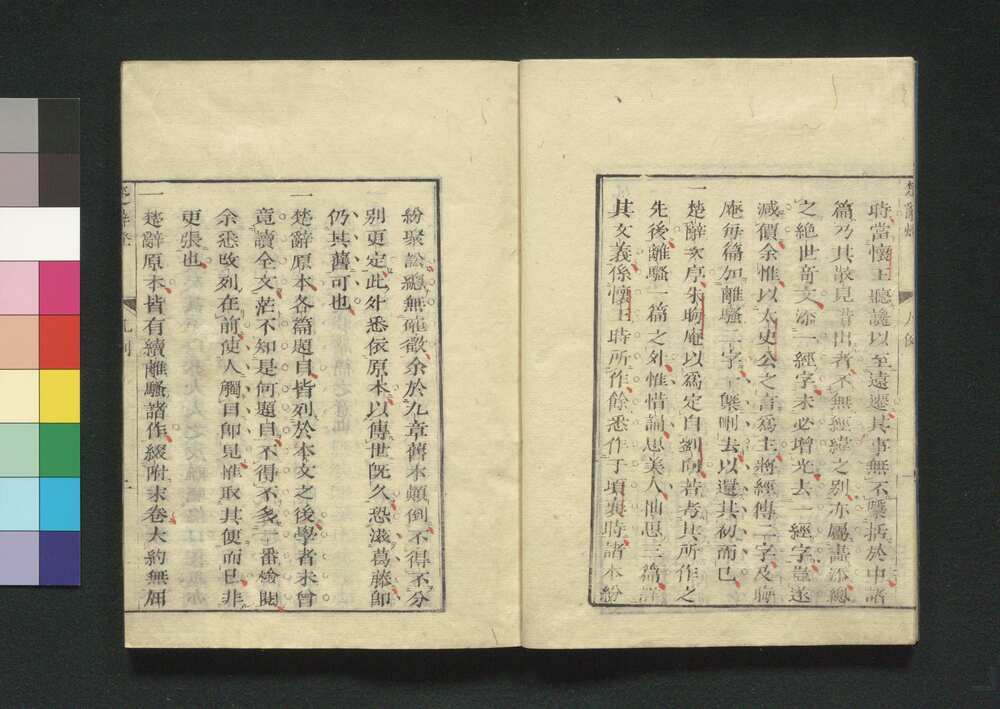 時當懷王聽讒以至遠遷其事無不櫽括於中諸
篇乃其散見錯出者不無經緯之別亦屬畫添總
之絕世奇文添一經字未必增光去一經字豈遂
減價余惟以太史公之言爲主將經傳二字及晦
庵每篇加離騷二字一槩刪去以還其初而已
一楚辭次序朱晦庵以爲定自劉向若考其所作之
先後離騷一篇之外惟惜誦思美人抽思三篇詳
其文義係懷王時所作餘悉作于頃襄時諸本紛
紛聚訟總無確徵余於九章舊本顛倒不得不分
別更定此外悉依原本以傳世旣久恐滋葛藤卽
仍其舊可也
一楚辭原本各篇題目皆列於本文之後學者未曾
竟讀全文茫不知是何題目不得不多一番檢閱
余悉改列在前使人觸目卽見惟取其便而已非
更張也
一楚辭原本皆有續離騷諸作綴附末卷大約無屈